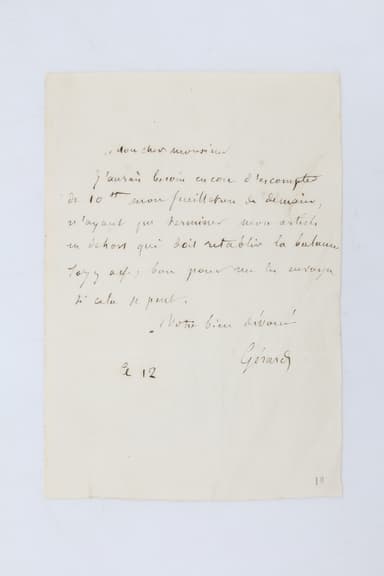 Mon cher monsieur
J'aurais besoin encore d'escompter
de 10 tt mon feuilleton de demain,
n'ayant pu terminer mon article
en dehors qui doit rétablir la balance
Soyez assez bon pour me les envoyer
si cela se peut.
Votre bien dévoué
Gérard
le 12
18